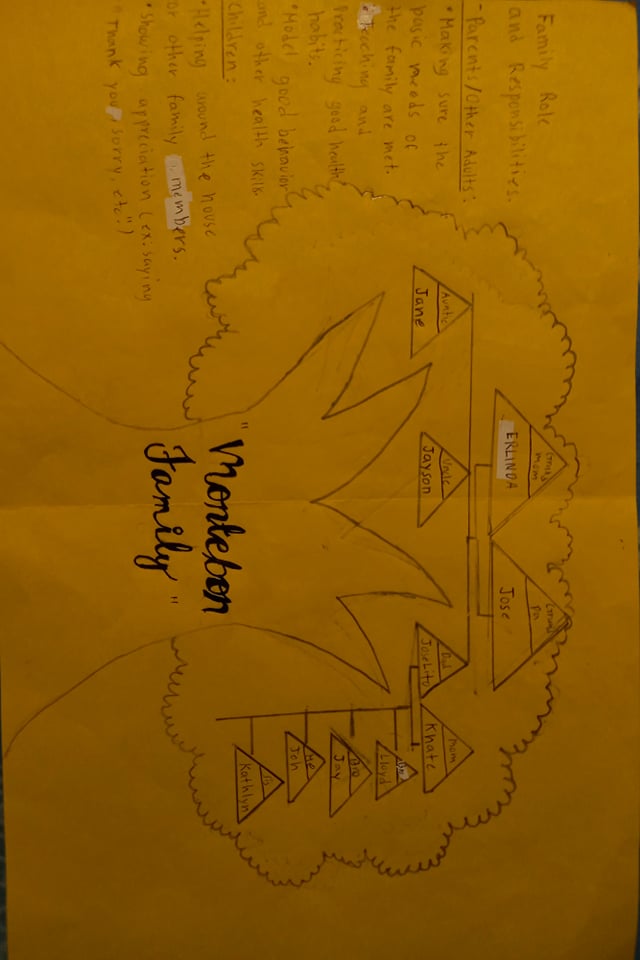 Family Role
and Responsibilities.
- Parents/Other Adults:
• Making sure the
basic needs of
the family are met.
teaching and
Practicing good health
habits.
• Model good behavior
and other health skills
Children:
• Helping around the house
or other family members.
• Showing appreciation (ex: saying
"Thank you, sorry, etc.")
Grand mom
ERLINDA
Grand pa
Jose
Auntie
Jane
Uncle
Jayson
Dad
Joselito
Mom
Khate
Lloyd
Bro
Jay
Me
Joh
Sis
Kathlyn
"Montebon
Family"